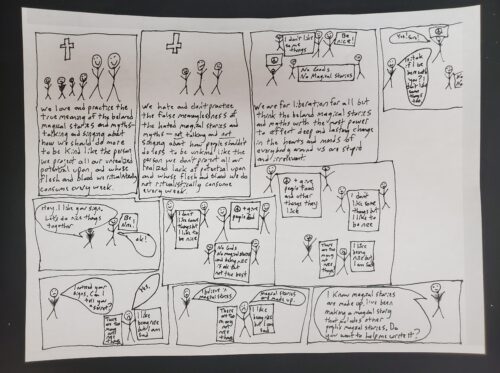 we love and practice the
true meaning of the beloved
magical stories and myths-
talking and singing about
how we should do more
to be kind like the person
we project all our unrealized
potential upon and whose
flesh and blood we ritualistically
consume every week.
We hate and don't practice
the false meaninglessness of
the hated magical stories and
myths - not talking and not
singing about how people shouldn't
do less to be unkind like the
person we don't project all our
realized lack of potential upon
and whose flesh and blood we do
not ritualistically consume
every week.
I don't like
some things
Be
nice!
No Gods
No Magical Stories
We are for liberation for all but
think the beloved magical stories
and myths with the most power
to effect deep and lasting change
in the hearts and minds of
everybody around us are stupid
and irrelevant.
Yes! Sure!
here
with you?
I don't like
some
things
too.
Hey. I like your sign.
Let's do nice things
together
Be
Nice!
ok!
I don't like
some
things but
I like to
be nice
+ give
people food
No Gods
No magical stories
and being nice
is ok but
not the best
+ give
people food
and other
things they
like
I don't
like some
things but
I like to
be nice
There are
too many
not nice
things
I like
being
nice but
I am sad
I noticed your
signs. Can I
tell you
a secret?
Yes.
There are too
many not
nice things
I like
being nice
but I am
sad
I believe in
magical stories
magical stories
are made up.
There are
too many
not nice
things
I like
being
nice but
I am
sad
I know magical stories
are made up. I've been
making a magical story
that includes other
people's magical stories. Do
you want to help me write it?